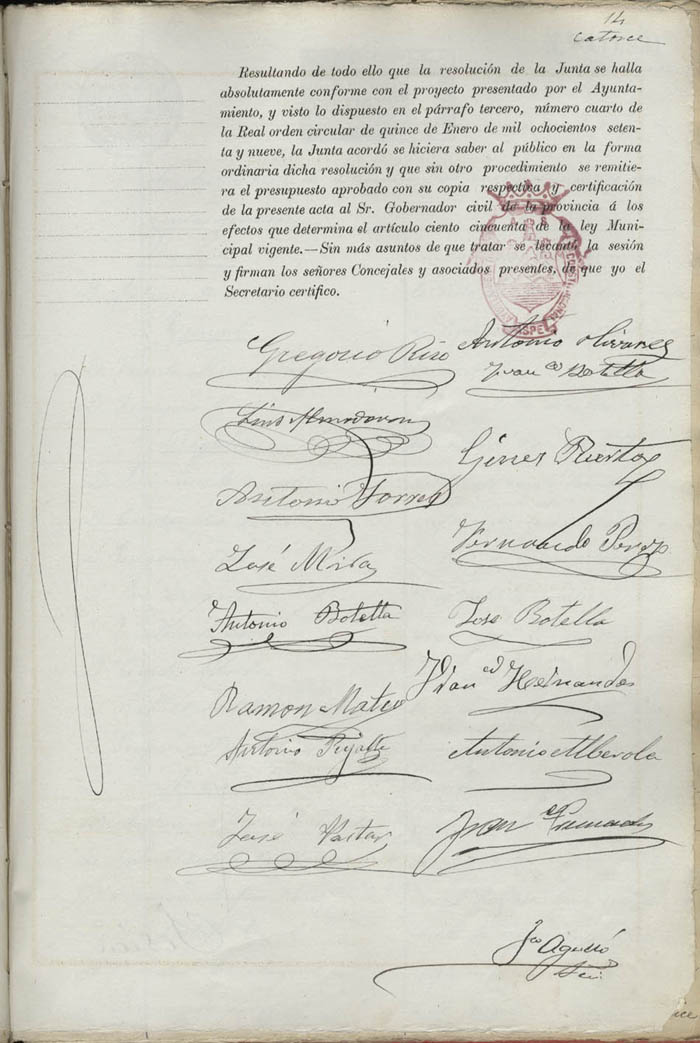 14
catorce
Resultando de todo ello que la resolución de la Junta se halla
absolutamente conforme con el proyecto presentado por el Ayunta-
miento, y visto lo dispuesto en el párrafo tercero, número cuarto de
la Real orden circular de quince de Enero de mil ochocientos seten-
ta y nueve, la Junta acordó se hiciera saber al público en la forma
ordinaria dicha resolución y que sin otro procedimiento se remitie-
ra el presupuesto aprobado con su copia respectiva y certificación
de la presente acta al Sr. Gobernador civil de la provincia á los
efectos que determina el artículo ciento cincuenta de la ley Muni-
cipal vigente.—Sin más asuntos de que tratar se levantó la sesión
y firman los señores Concejales y asociados presentes, de que yo el
Secretario certifico.
ASPE
Gregorio Rizo Antonio Olivares
Fran.co Botella
Luis Almodovar
Gines Puerto
Antonio Torres
Fernando Perez
José Mira
Antonio Botella José Botella
Ramon Mateo Fran.co Hernandes
Antonio Antonio Alberola
José Pastor Fran.co
Fco
Srio